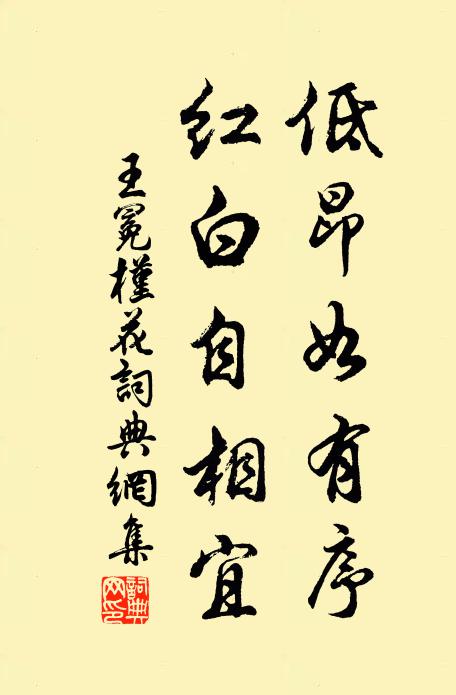 低昂如有序
紅白自相宜
王冕槿花詞典網集
詞典網印